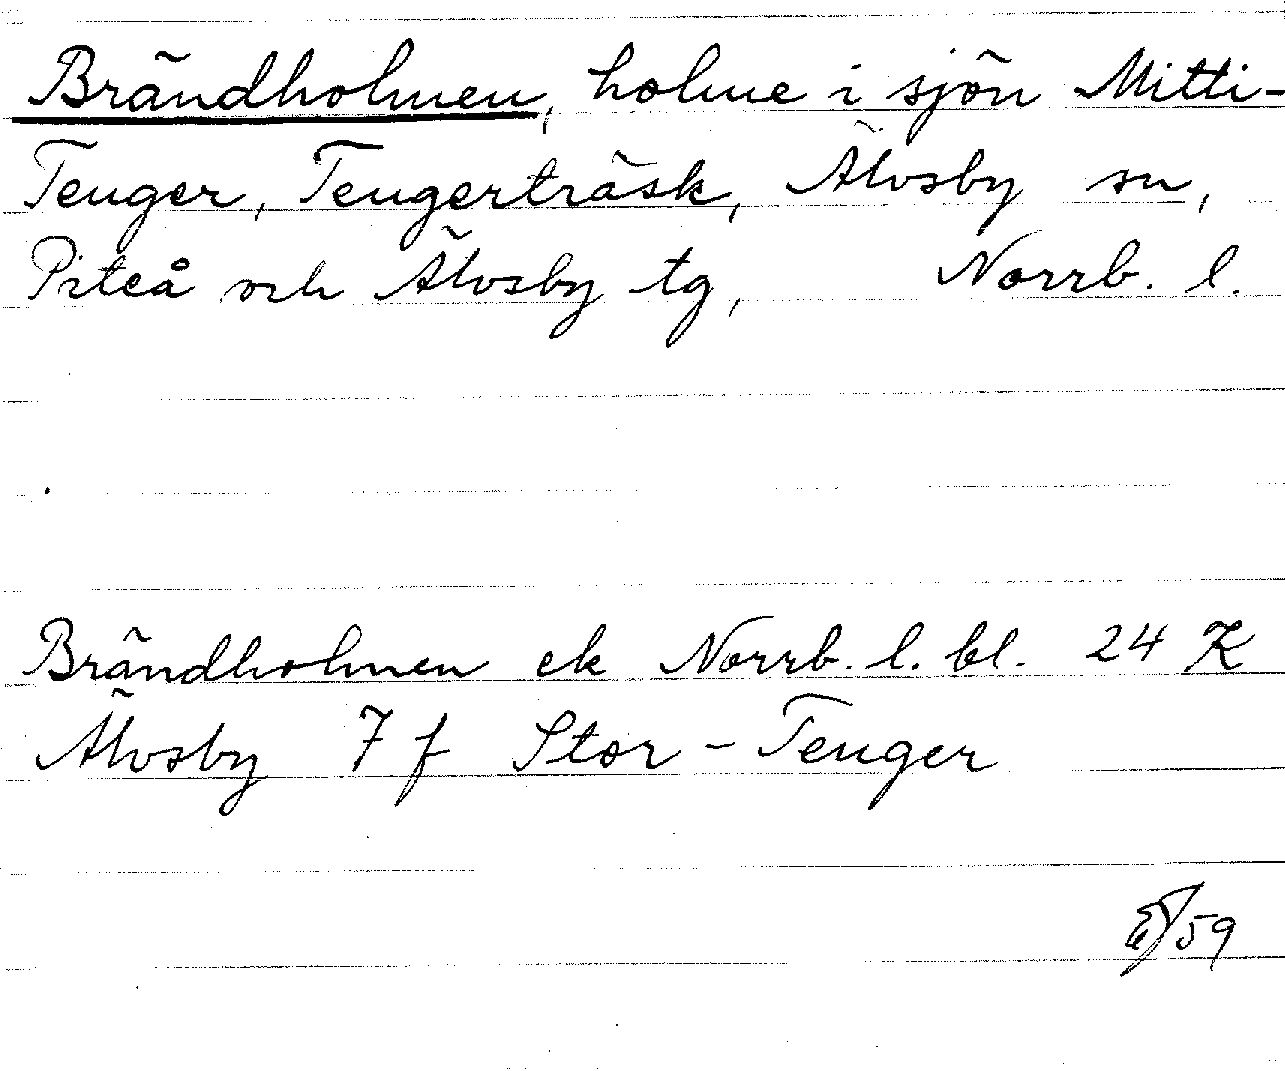 Brändholmen, holme i sjön Mitti-
Tenger, Tengerträsk, Älvsby sn,
Piteå och Älvsby tg, Norrb. l.
Brändholmen ek Norrb. l. bl. 24 K
Älvsby 7 f Stor-Tenger
/59